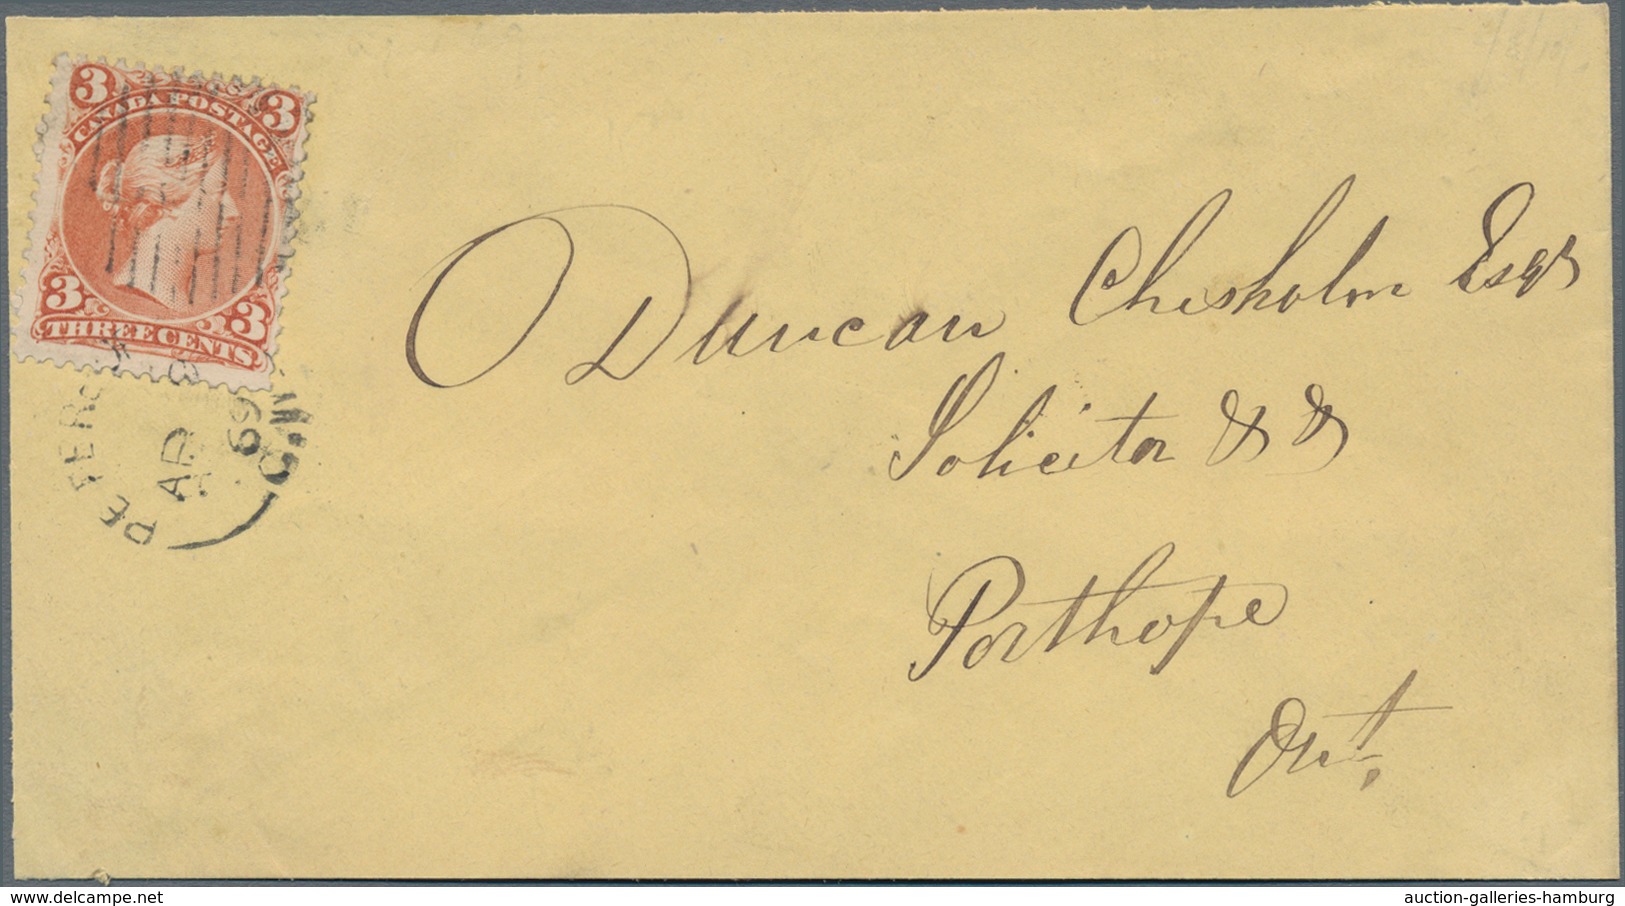 3 3
CANADA POSTAGE
3 3
THREE CENTS
AP
69
Duncan Chisholm Esqr
Solicitor && 
Porthope
Ont.
delcampe.net
auction-galleries-hamburg